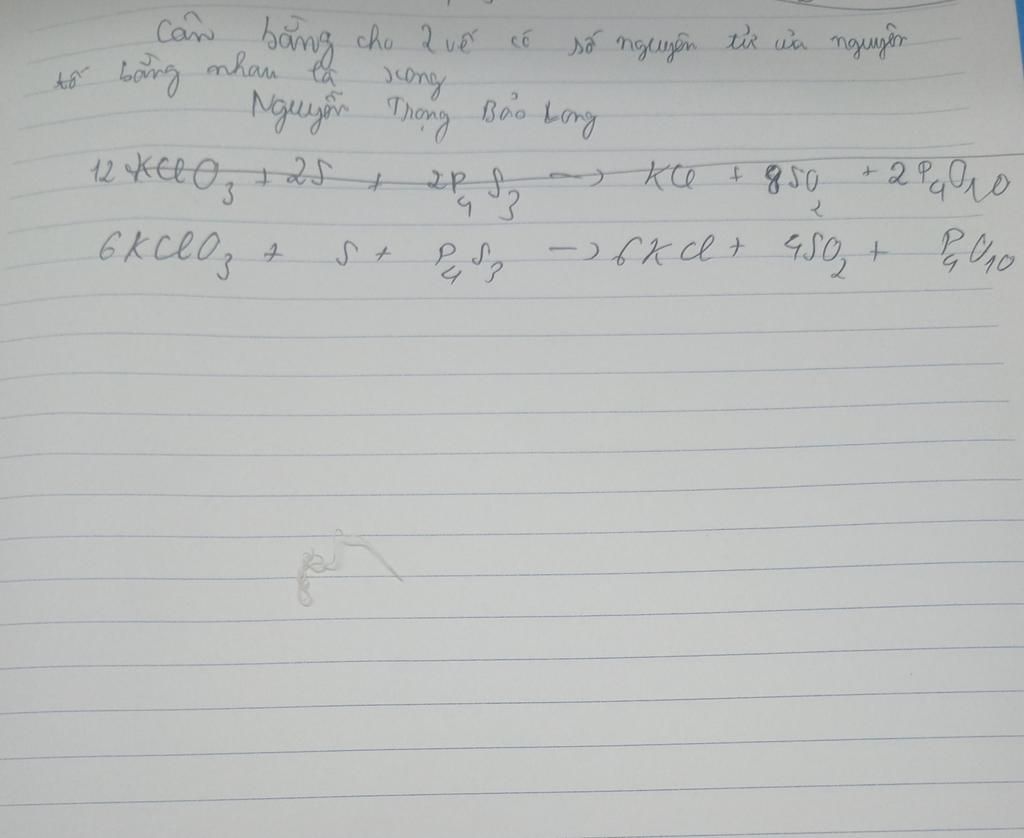 Cân bằng cho 2 vế có số nguyên tử của nguyên
tố bằng nhau là xong
Nguyễn Trọng Bảo Long
12 KClO3 + 2S + 2P4S3 → KCl + 8SO2 + 2P4O10
6KClO3 + S + P4S3 → 6KCl + 4SO2 + P4O10